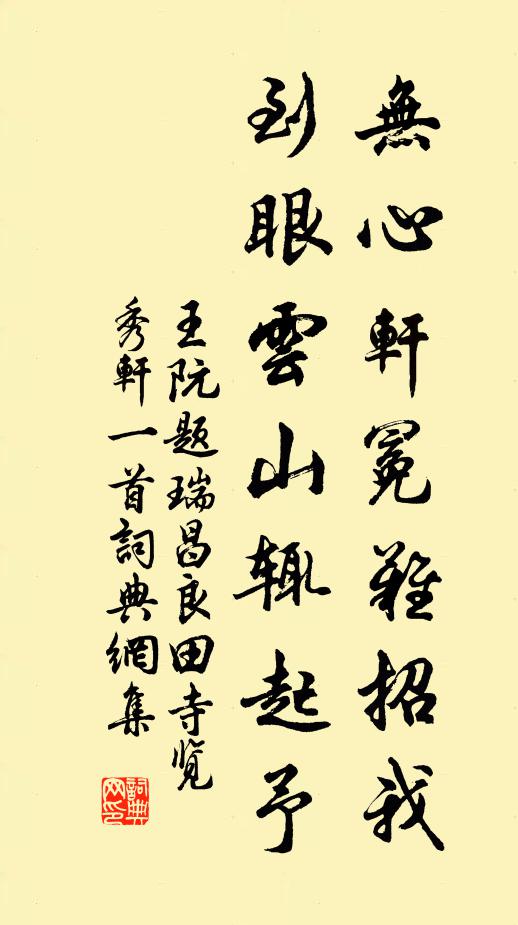 無心軒冕難招我
到眼雲山輒起予
王阮题瑞昌良田寺览
秀軒一首詞典網集
詞典
网印